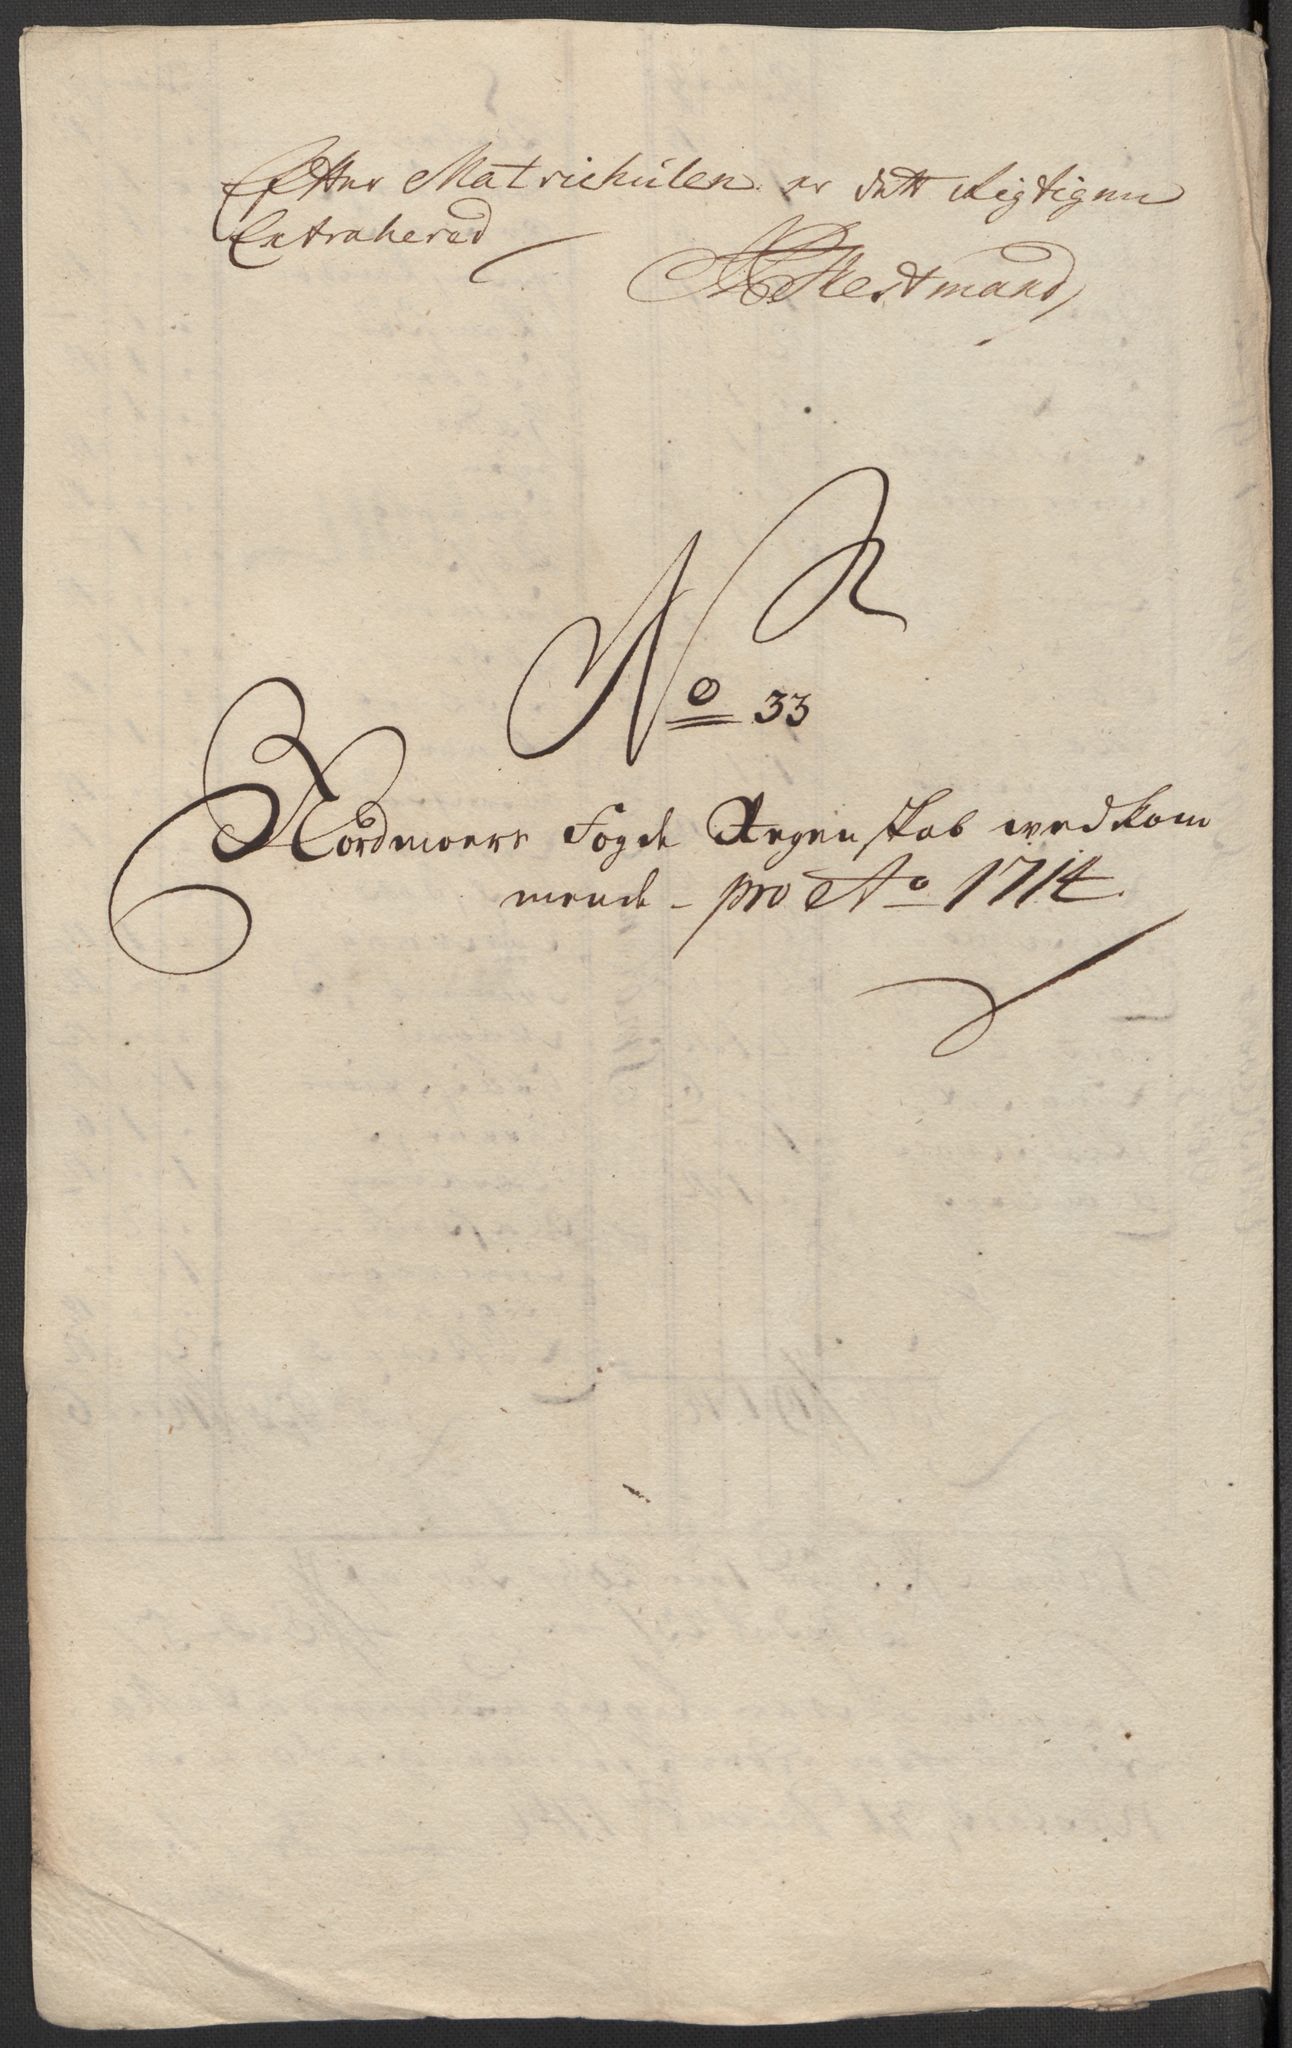 Efter Matriculen er dette Rigtigen
Extrahered
No 33
Nordmoers Fogde Regenskab wedkom
mende - pro Ao 1714.